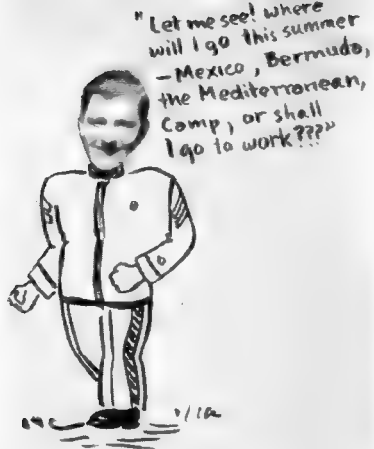 "Let me see! where
will I go this summer
- Mexico, Bermuda,
the Mediterranean,
Camp, or shall
I go to work???"